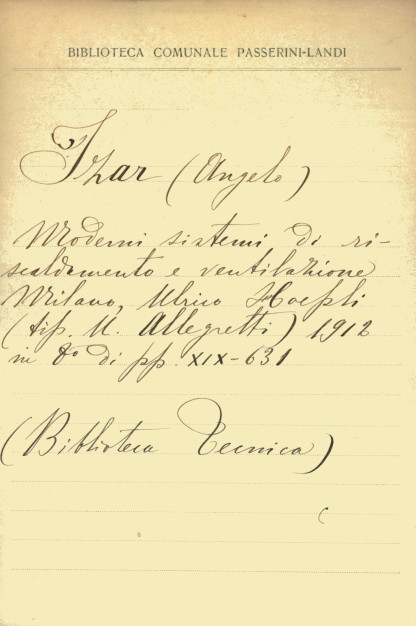 BIBLIOTECA COMUNALE PASSERINI-LANDI
Izar (Angelo)
Moderni sistemi di ri-
scaldamento e ventilazione
Milano, Ulrico Hoepli
(tip. U. Allegretti) 1912
in 8° di pp. XIX-631
(Biblioteca Tecnica)